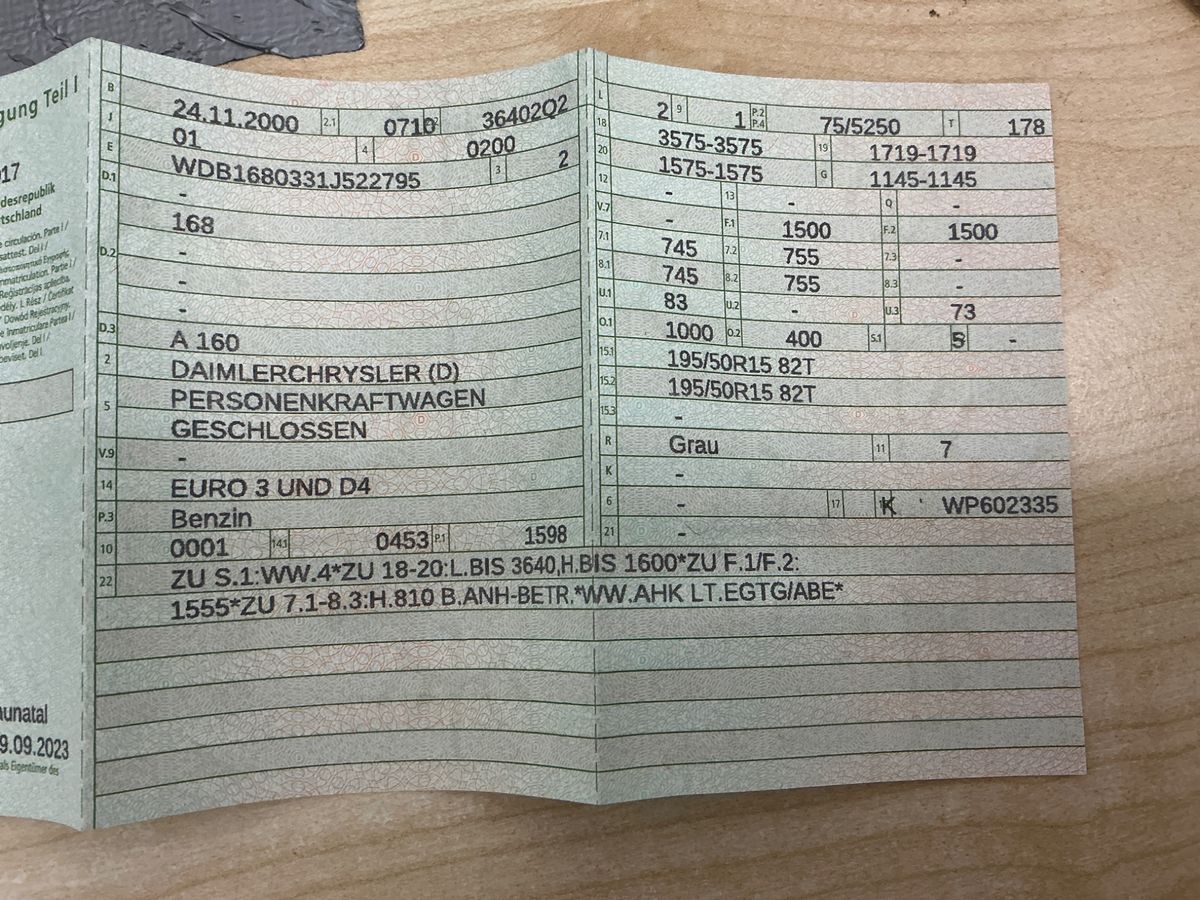 gung Teil I
17
desrepublik
tschland
aunatal
9.09.2023
als Eigentümer des
B 24.11.2000 2.1 0710 2.2 36402Q2
J 01 4 0200
E WDB1680331J522795 3 2
D.1 -
168
D.2 -
-
-
D.3 A 160
2 DAIMLERCHRYSLER (D)
5 PERSONENKRAFTWAGEN
GESCHLOSSEN
V.9 -
14 EURO 3 UND D4
P.3 Benzin
10 0001 14.1 0453 P.1 1598
L 2 9 1 P.2 P.4 75/5250 T 178
18 3575-3575 19 1719-1719
20 1575-1575 G 1145-1145
12 - 13 - Q -
V.7 - F.1 1500 F.2 1500
7.1 745 7.2 755 7.3 -
8.1 745 8.2 755 8.3 -
U.1 83 U.2 - U.3 73
O.1 1000 O.2 400 S.1 5 -
15.1 195/50R15 82T
15.2 195/50R15 82T
15.3 -
R Grau 11 7
K -
6 - 17 K WP602335
21 -
22 ZU S.1:WW.4*ZU 18-20:L.BIS 3640,H.BIS 1600*ZU F.1/F.2:
1555*ZU 7.1-8.3:H.810 B.ANH-BETR.*WW.AHK LT.EGTG/ABE*